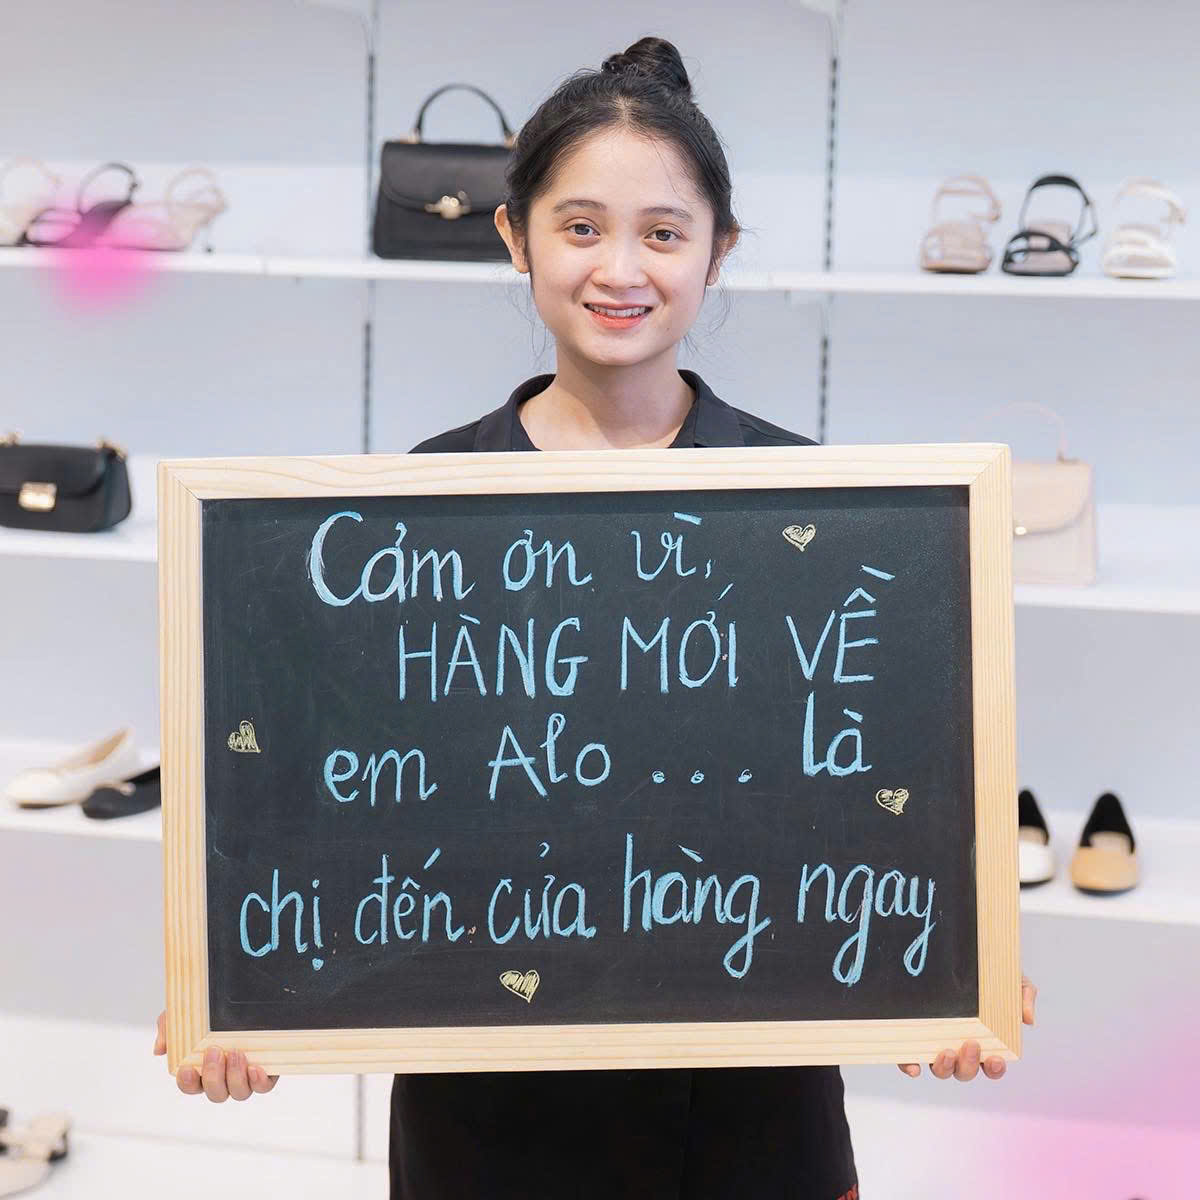 Cảm ơn vì,
HÀNG MỚI VỀ
em Alo ... là
chị đến cửa hàng ngay